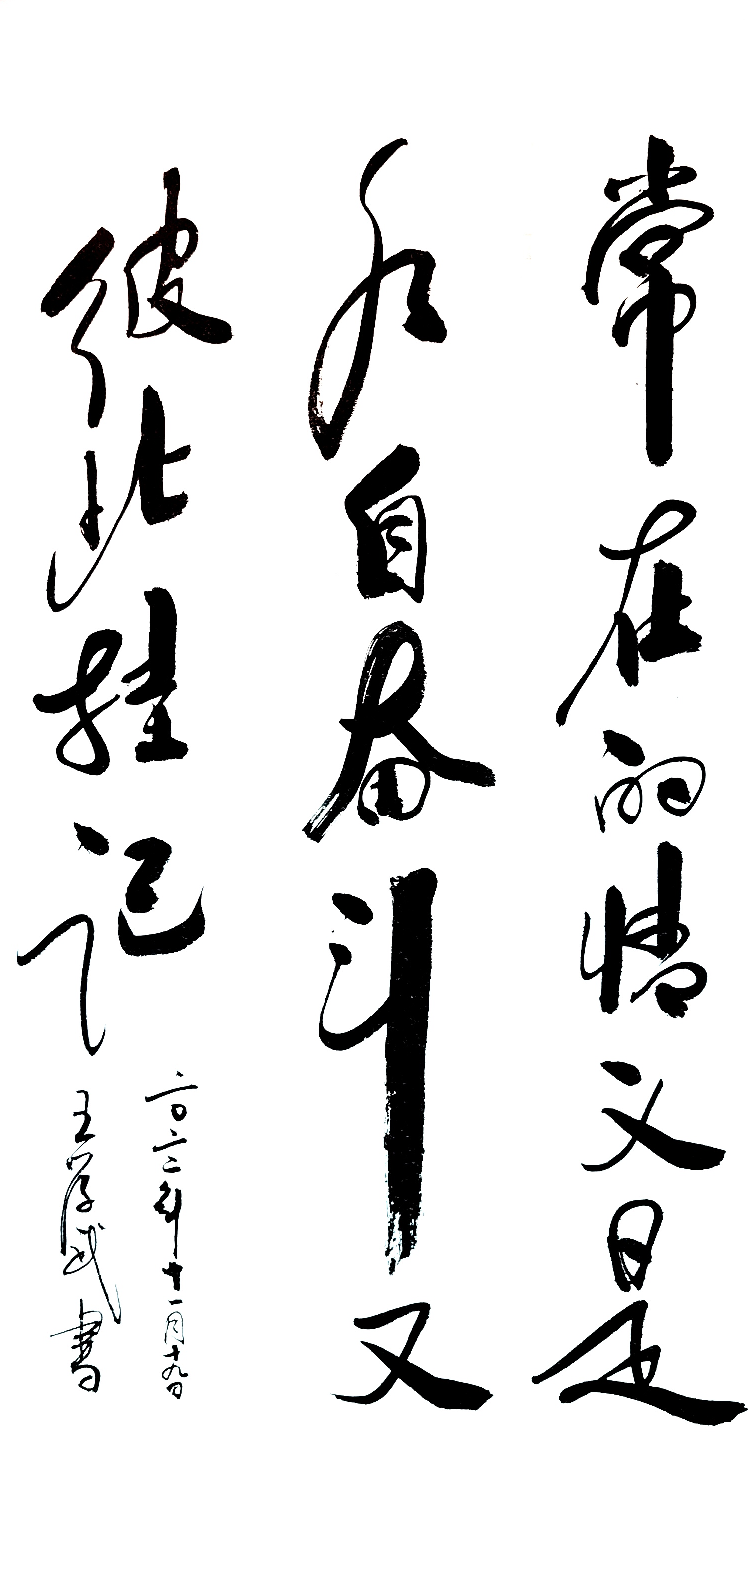 常在的情义是
各自奋斗又
彼此挂记
二〇二二年十一月十九日
王武書